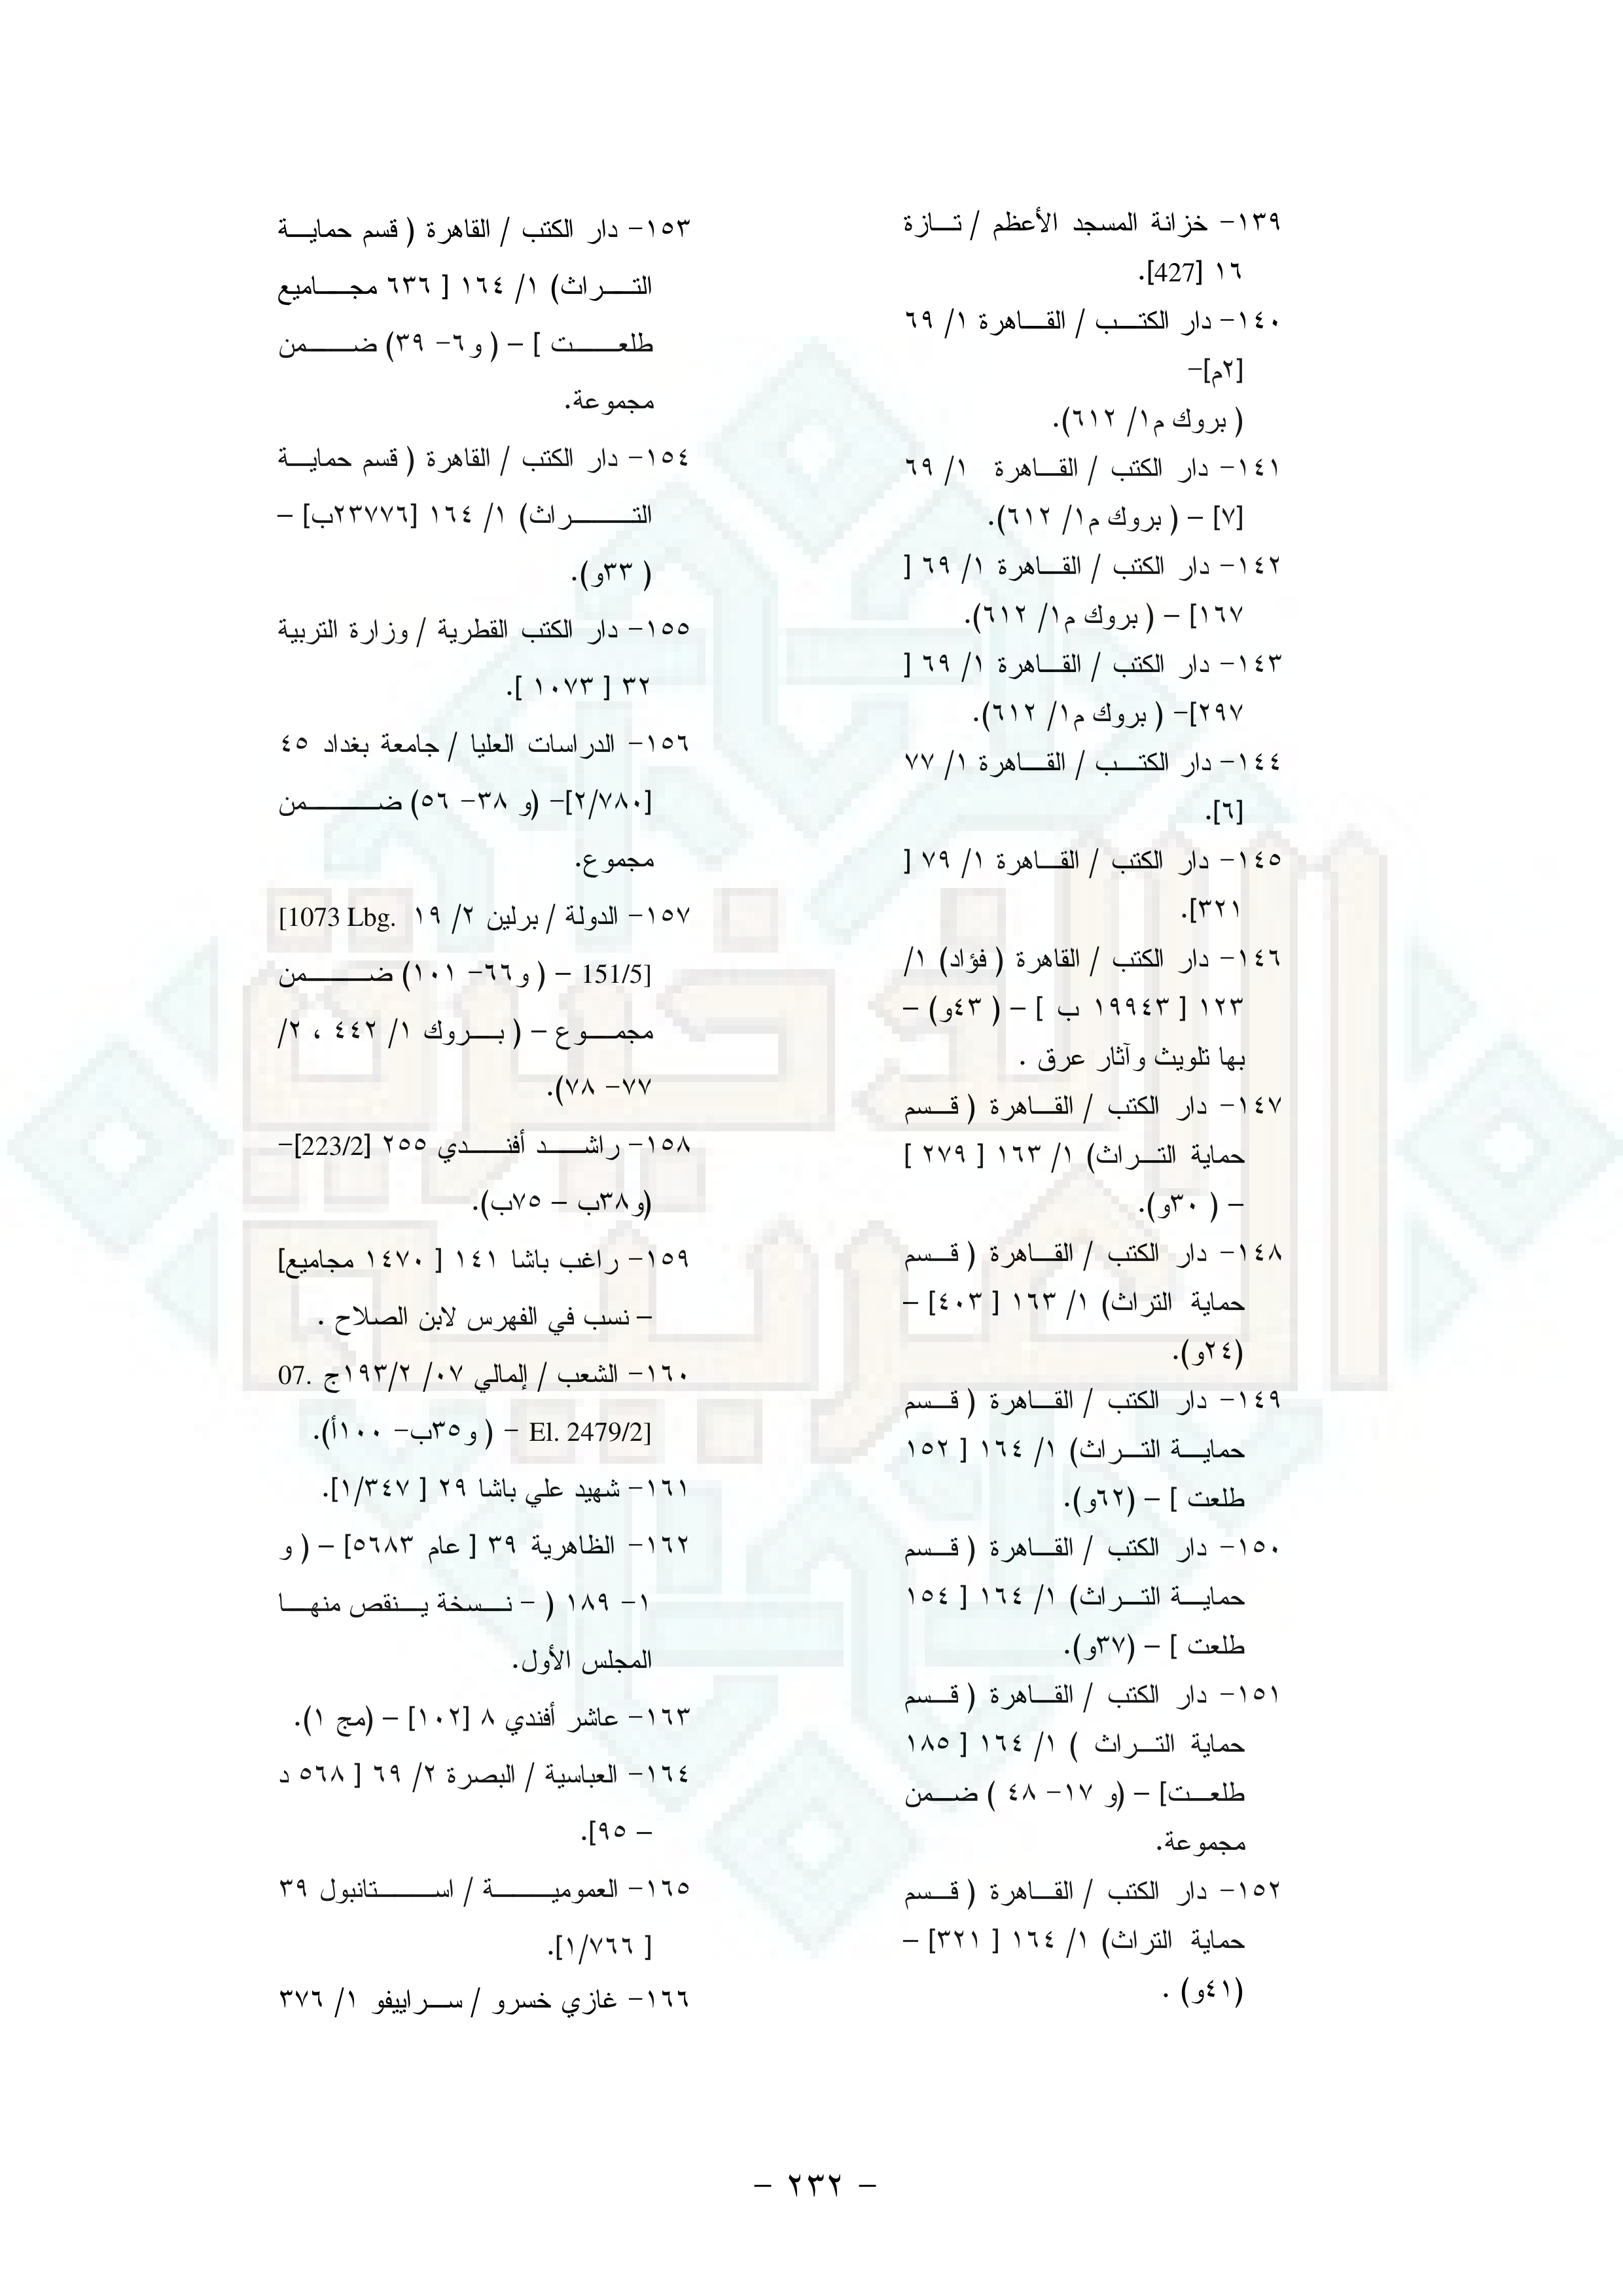 ١٣٩- خزانة المسجد الأعظم / تازة
١٦ [427].
١٤٠- دار الكتب / القاهرة ١/ ٦٩
[٢م]-
( بروك م١/ ٦١٢).
١٤١- دار الكتب / القاهرة ١/ ٦٩
[٧] – ( بروك م١/ ٦١٢).
١٤٢- دار الكتب / القاهرة ١/ ٦٩ [
١٦٧] – ( بروك م١/ ٦١٢).
١٤٣- دار الكتب / القاهرة ١/ ٦٩ [
٢٩٧]- ( بروك م١/ ٦١٢).
١٤٤- دار الكتب / القاهرة ١/ ٧٧
[٦].
١٤٥- دار الكتب / القاهرة ١/ ٧٩ [
٣٢١].
١٤٦- دار الكتب / القاهرة ( فؤاد) ١/
١٢٣ [ ١٩٩٤٣ ب ] – ( ٤٣و) –
بها تلويث وآثار عرق .
١٤٧- دار الكتب / القاهرة ( قسم
حماية التراث) ١/ ١٦٣ [ ٢٧٩ ]
– ( ٣٠و).
١٤٨- دار الكتب / القاهرة ( قسم
حماية التراث) ١/ ١٦٣ [ ٤٠٣] –
(٢٤و).
١٤٩- دار الكتب / القاهرة ( قسم
حماية التراث) ١/ ١٦٤ [ ١٥٢
طلعت ] – (٦٢و).
١٥٠- دار الكتب / القاهرة ( قسم
حماية التراث) ١/ ١٦٤ [ ١٥٤
طلعت ] – (٣٧و).
١٥١- دار الكتب / القاهرة ( قسم
حماية التراث ) ١/ ١٦٤ [ ١٨٥
طلعت] – (و ١٧- ٤٨ ) ضمن
مجموعة.
١٥٢- دار الكتب / القاهرة ( قسم
حماية التراث) ١/ ١٦٤ [ ٣٢١] –
(٤١و) .
١٥٣- دار الكتب / القاهرة ( قسم حماية
التراث) ١/ ١٦٤ [ ٦٣٦ مجاميع
طلعت ] – ( و٦- ٣٩) ضمن
مجموعة.
١٥٤- دار الكتب / القاهرة ( قسم حماية
التراث) ١/ ١٦٤ [٢٣٧٧٦ب] –
( ٣٣و).
١٥٥- دار الكتب القطرية / وزارة التربية
٣٢ [ ١٠٧٣ ].
١٥٦- الدراسات العليا / جامعة بغداد ٤٥
[٢/٧٨٠]- (و ٣٨- ٥٦) ضمن
مجموع.
١٥٧- الدولة / برلين ٢/ ١٩ [1073 Lbg.
151/5] – ( و٦٦- ١٠١) ضمن
مجموع – ( بروك ١/ ٤٤٢ ، ٢/
٧٧- ٧٨).
١٥٨- راشد أفندي ٢٥٥ [223/2]-
(و٣٨ب – ٧٥ب).
١٥٩- راغب باشا ١٤١ [ ١٤٧٠ مجاميع]
– نسب في الفهرس لابن الصلاح .
١٦٠- الشعب / إلمالي ٠٧/ ١٩٣/٢ج 07.
El. 2479/2] – ( و٣٥ب- ١٠٠أ).
١٦١- شهيد علي باشا ٢٩ [ ١/٣٤٧].
١٦٢- الظاهرية ٣٩ [ عام ٥٦٨٣] – ( و
١- ١٨٩ ( – نسخة ينقص منها
المجلس الأول.
١٦٣- عاشر أفندي ٨ [١٠٢] – (مج ١).
١٦٤- العباسية / البصرة ٢/ ٦٩ [ ٥٦٨ د
– ٩٥].
١٦٥- العمومية / استانبول ٣٩
[ ١/٧٦٦].
١٦٦- غازي خسرو / سراييفو ١/ ٣٧٦
- ٢٣٢ -
الذخيرة
العربية